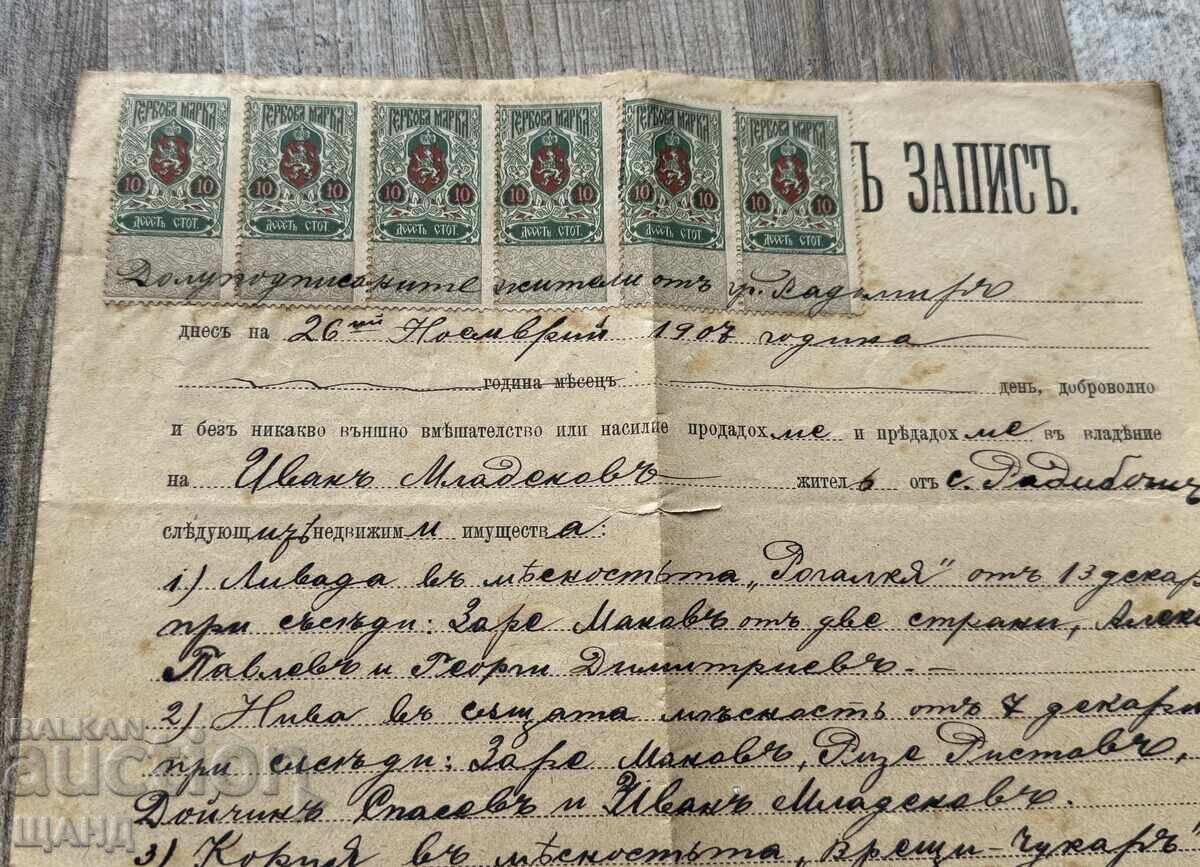 ГЕРБОВА МАРКА ГЕРБОВА МАРКА ГЕРБОВА МАРКА ГЕРБОВА МАРКА ГЕРБОВА МАРКА ГЕРБОВА МАРКА
10 10 10 10 10 10 10 10 10 10 10 10
ДЕСЕТЬ СТОТ. ДЕСЕТЬ СТОТ. ДЕСЕТЬ СТОТ. ДЕСЕТЬ СТОТ. ДЕСЕТЬ СТОТ. ДЕСЕТЬ СТОТ.
Ъ ЗАПИСЪ.
Долуподписаните жители отъ гр. Радомиръ
днесъ на 26ий Ноемврий 1907 година
година мѣсецъ день, доброволно
и безъ никакво външно вмѣшателство или насилие продадохме и прѣдадохме въ владѣние
на Иванъ Младеновъ житель отъ с. Радибошъ
слѣдующитѣ недвижими имущества:
1) Ливада въ мѣсностьта „Рогалкя" отъ 13 декар
при съсѣди: Заре Мановъ отъ две страни, Алек
Павлевъ и Георги Димитриевъ. —
2) Нива въ същата мѣсность отъ 7 декари
при съсѣди: Заре Мановъ, Ризе Ристовъ,
Дойчинъ Спасовъ и Иванъ Младеновъ.
3) Кория въ мѣсностьта „Врещи-чукаръ"
BALKAN
auction
ЩАНД